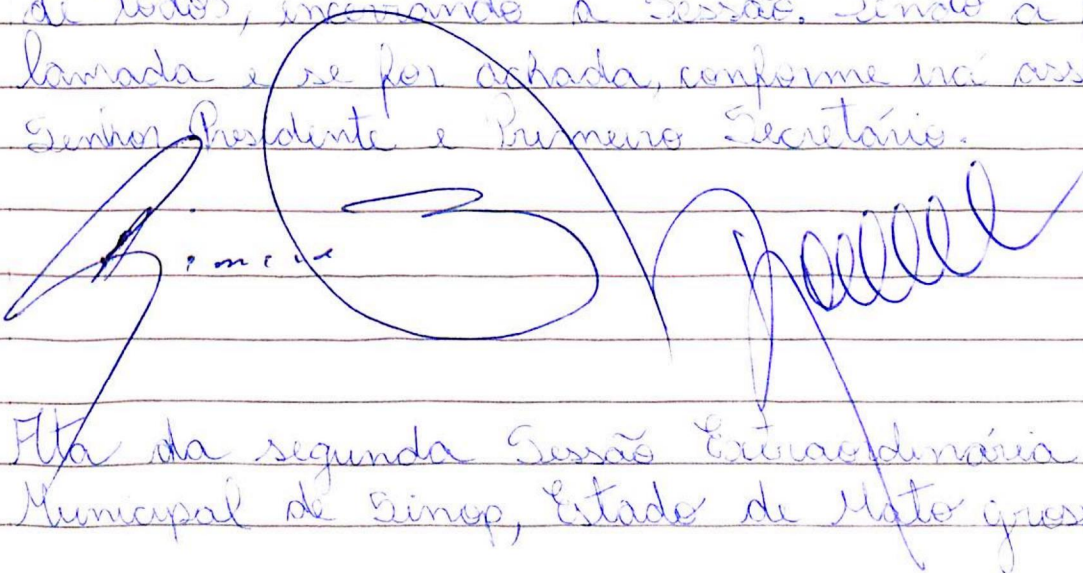 de todos, encerrando a Sessão. Sendo a
lavrada e se for achada, conforme irá ass
Senhor Presidente e Primeiro Secretário.
Ata da segunda Sessão Extraordinária
Municipal de Sinop, Estado de Mato gross